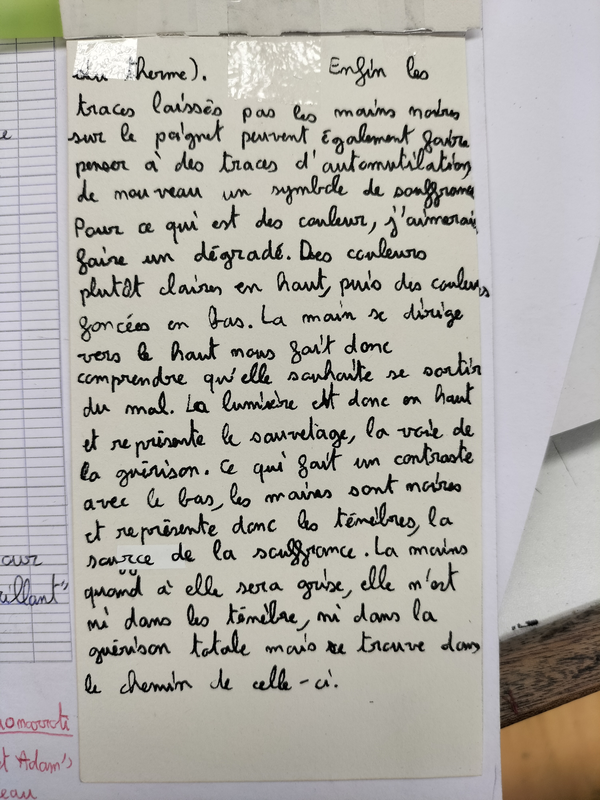 du therme). Enfin les
traces laissés pas les mains noires
sur le poignet peuvent également faire
penser à des traces d'automutilation,
de nouveau un symbole de souffrance
Pour ce qui est des couleur, j'aimerai
faire un dégradé. Des couleurs
plutôt claires en haut, puis des couleurs
foncées en bas. La main se dirige
vers le haut nous fait donc
comprendre qu'elle souhaite se sortir
du mal. La lumière est donc en haut
et représente le sauvetage, la voie de
la guérison. Ce qui fait un contraste
avec le bas, les maires sont noires
et représente donc les ténèbres, la
source de la souffrance. La mains
quand à elle sera grise, elle n'est
ni dans les ténèbre, ni dans la
guérison totale mais se trouve dans
le chemin de celle-ci.
our
illant"
et Adam's
eau